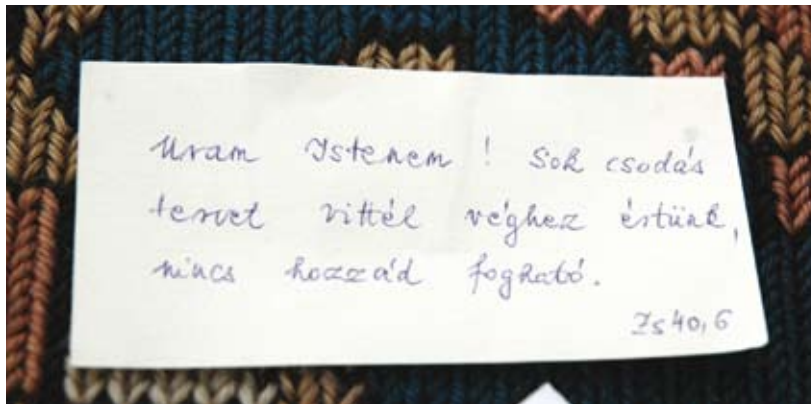 Uram Istenem ! Sok csodás
tervet vittél véghez értünk,
nincs hozzád fogható.
Zs 40,6